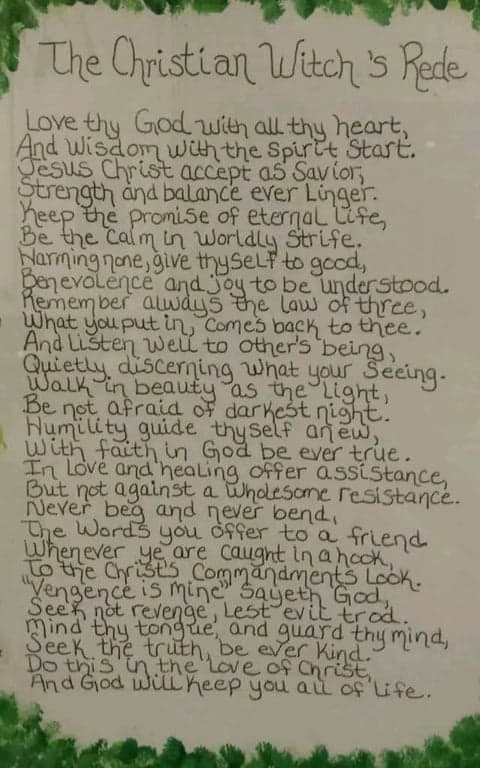 The Christian Witch's Rede
Love thy God with all thy heart,
And Wisdom with the Spirit Start.
Jesus Christ accept as Savior,
Strength and balance ever Linger.
Keep the promise of eternal Life,
Be the Calm in Worldly Strife.
Harming none, give thyself to good,
Benevolence and joy to be understood.
Remember always the law of three,
What you put in, Comes back to thee.
And Listen Well to other's being,
Quietly discerning what your Seeing.
Walk in beauty as the Light,
Be not afraid of darkest night.
Humility guide thyself anew,
With faith in God be ever true.
In Love and healing offer assistance,
But not against a Wholesome resistance.
Never beg and never bend,
The Words you offer to a friend
Whenever ye are Caught in a hook,
To the Christ's Commandments Look.
"Vengence is Mine" Sayeth God,
Seek not revenge, Lest evil trod.
Mind thy tongue, and guard thy mind,
Seek the truth, be ever Kind.
Do this in the Love of Christ,
And God will Keep you all of Life.